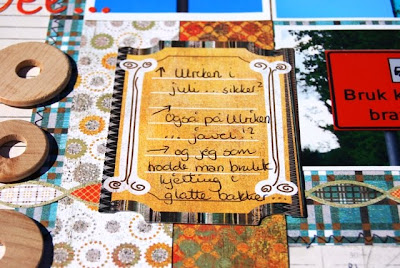 ↑ Ulriken i
juli ... sikker?
→
Også på Ulriken
... javel!?
→ og jeg som
trodde man brukte
kjetting i
glatte bakker...
Bruk k
bra